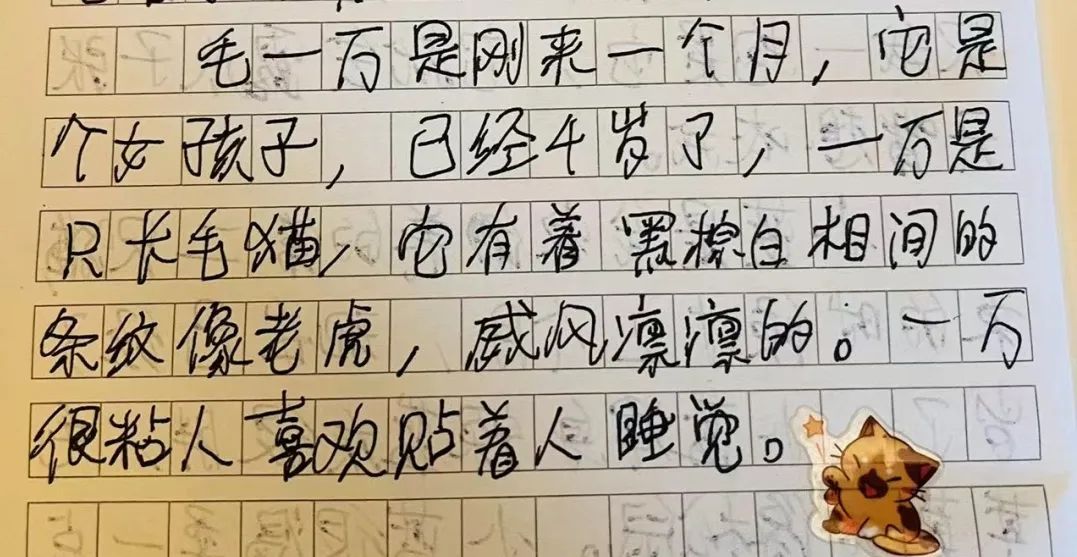 毛一万是刚来一个月，它是
个女孩子，已经4岁了，一万是
只长毛猫，它有着黑棕白相间的
条纹像老虎，威风凛凛的。一万
很粘人喜欢贴着人睡觉。